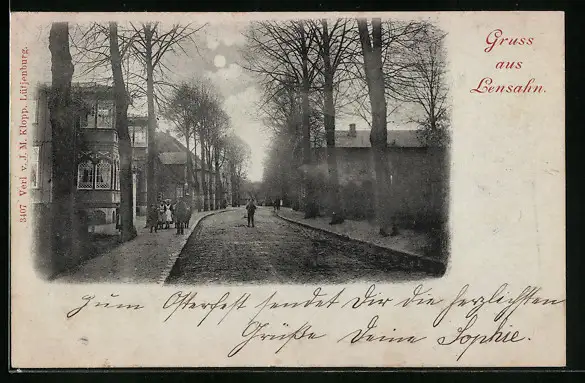 Gruss
aus
Lensahn.
3407 Verl v. J. M. Klopp, Lütjenburg.
Zum Osterfest sendet Dir die herzlichsten
Grüße Deine Sophie.